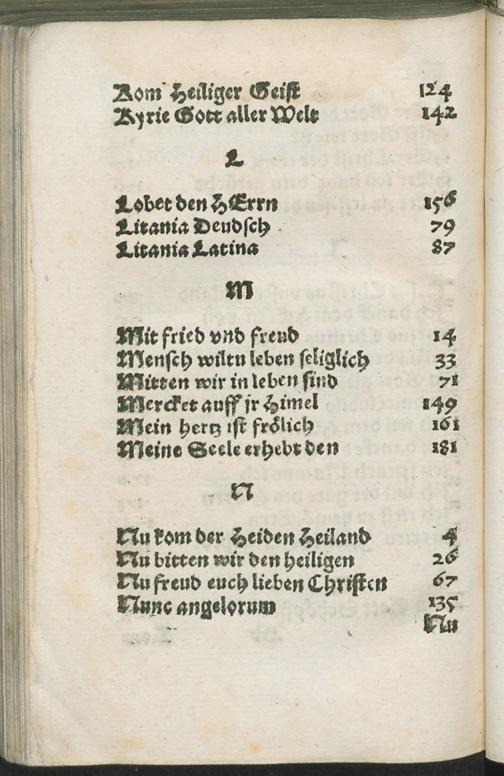 Kom Heiliger Geist 124
Kyrie Gott aller Welt 142
L
Lobet den HErrn 156
Litania Deudsch 79
Litania Latina 87
M
Mit fried vnd freud 14
Mensch wiltu leben seliglich 33
Mitten wir in leben sind 71
Mercket auff jr Himel 149
Mein hertz ist frölich 161
Meine Seele erhebt den 181
N
Nu kom der Heiden Heiland 4
Nu bitten wir den heiligen 26
Nu freud euch lieben Christen 67
Nunc angelorum 135
Nu